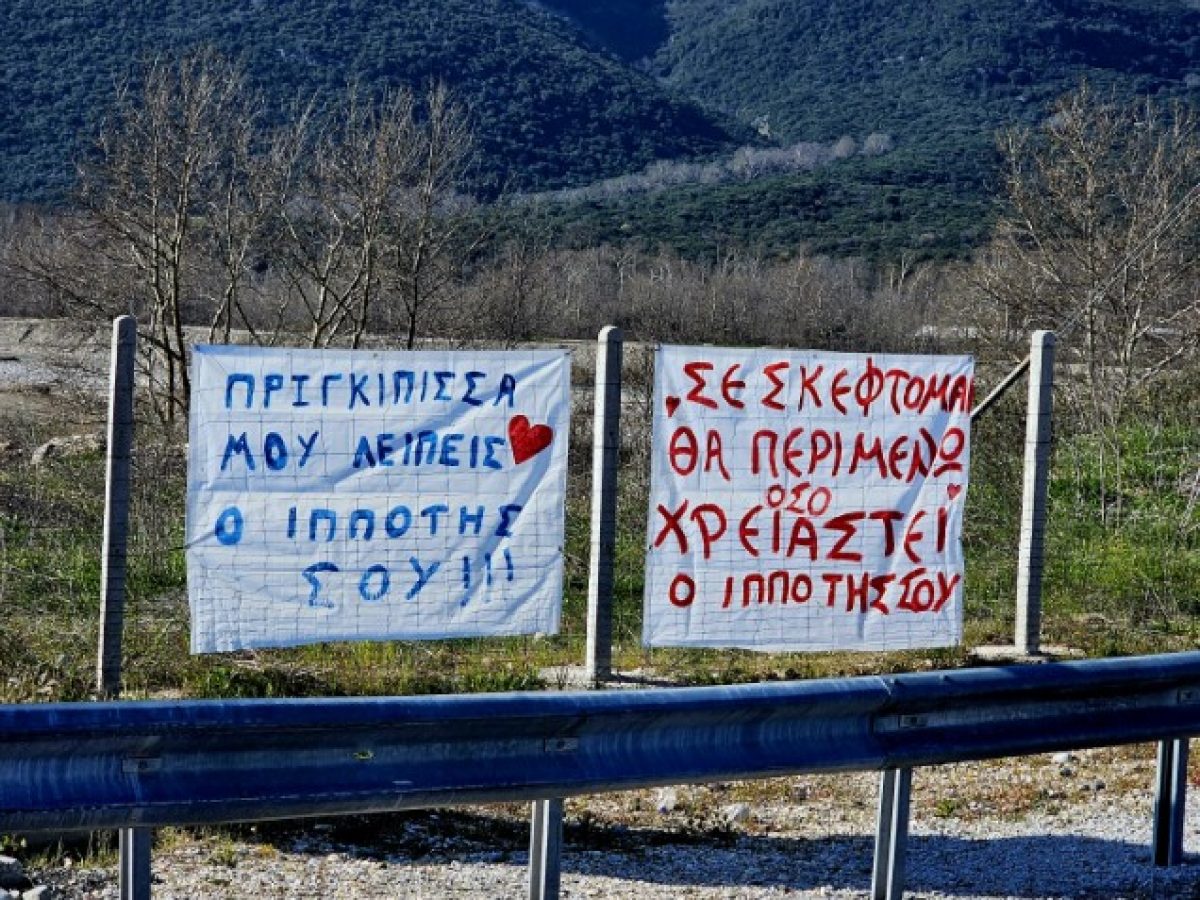 ΠΡΙΓΚΙΠΙΣΣΑ
ΜΟΥ ΛΕΙΠΕΙΣ
Ο ΙΠΠΟΤΗΣ
ΣΟΥ!!!
ΣΕ ΣΚΕΦΤΟΜΑΙ
ΘΑ ΠΕΡΙΜΕΝΩ
ΟΣΟ
ΧΡΕΙΑΣΤΕΙ
Ο ΙΠΠΟΤΗΣ ΣΟΥ